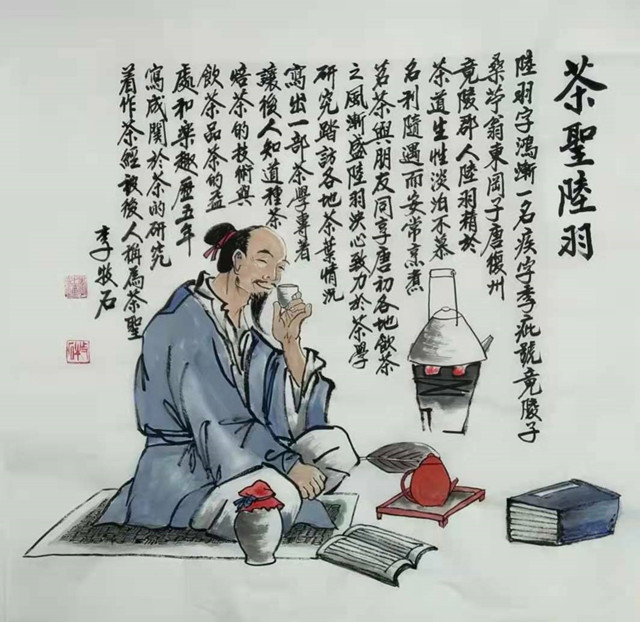 茶聖陸羽
陸羽字鴻漸一名疾字季疵號竟陵子
桑苧翁東岡子唐復州
竟陵郡人陸羽精於
茶道生性淡泊不慕
名利隨遇而安常烹煮
茗茶與朋友同享唐初各地飲茶
之風漸盛陸羽決心致力於茶學
研究踏訪各地茶葉情況
寫出一部茶學專著
讓後人知道種茶
焙茶的技術與
飲茶品茶的益
處和樂趣歷五年
寫成關於茶的研究
着作茶經被後人稱為茶聖
李牧石